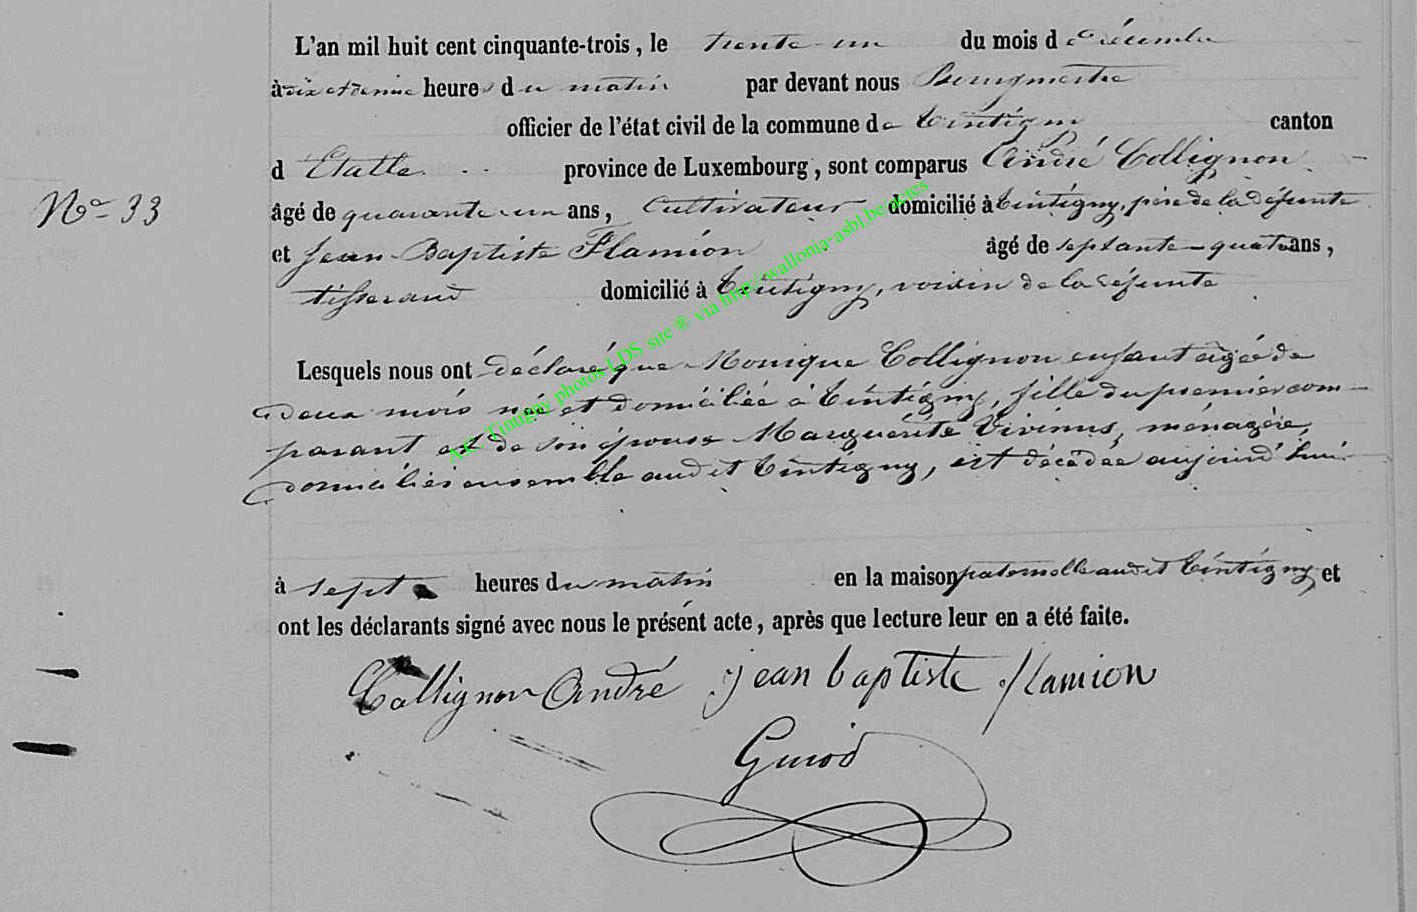 L'an mil huit cent cinquante-trois, le trente-un du mois de Décembre
à dix et demie heures du matin par devant nous Bourgmestre
officier de l'état civil de la commune de Tintigny canton
d Etalle province de Luxembourg, sont comparus André Collignon
N° 33
âgé de quarante-un ans, Cultivateur domicilié à Tintigny, père de la défunte
et Jean-Baptiste Flamion âgé de septante-quatre ans,
tisserand domicilié à Tintigny, voisin de la défunte
Lesquels nous ont déclaré que Monique Collignon enfant agée de
deux mois née et domiciliée à Tintigny, fille du premier com-
parant et de son épouse Marguerite Vivinus, ménagère,
domiciliés ensemble audit Tintigny, est décédée aujourd'hui
à sept heures du matin en la maison paternelle audit Tintigny et
ont les déclarants signé avec nous le présent acte, après que lecture leur en a été faite.
Collignon André jean baptiste flamion
Guiod
A.C. Tintigny photos LDS site ® via http://wallonia-asbl.be/actes